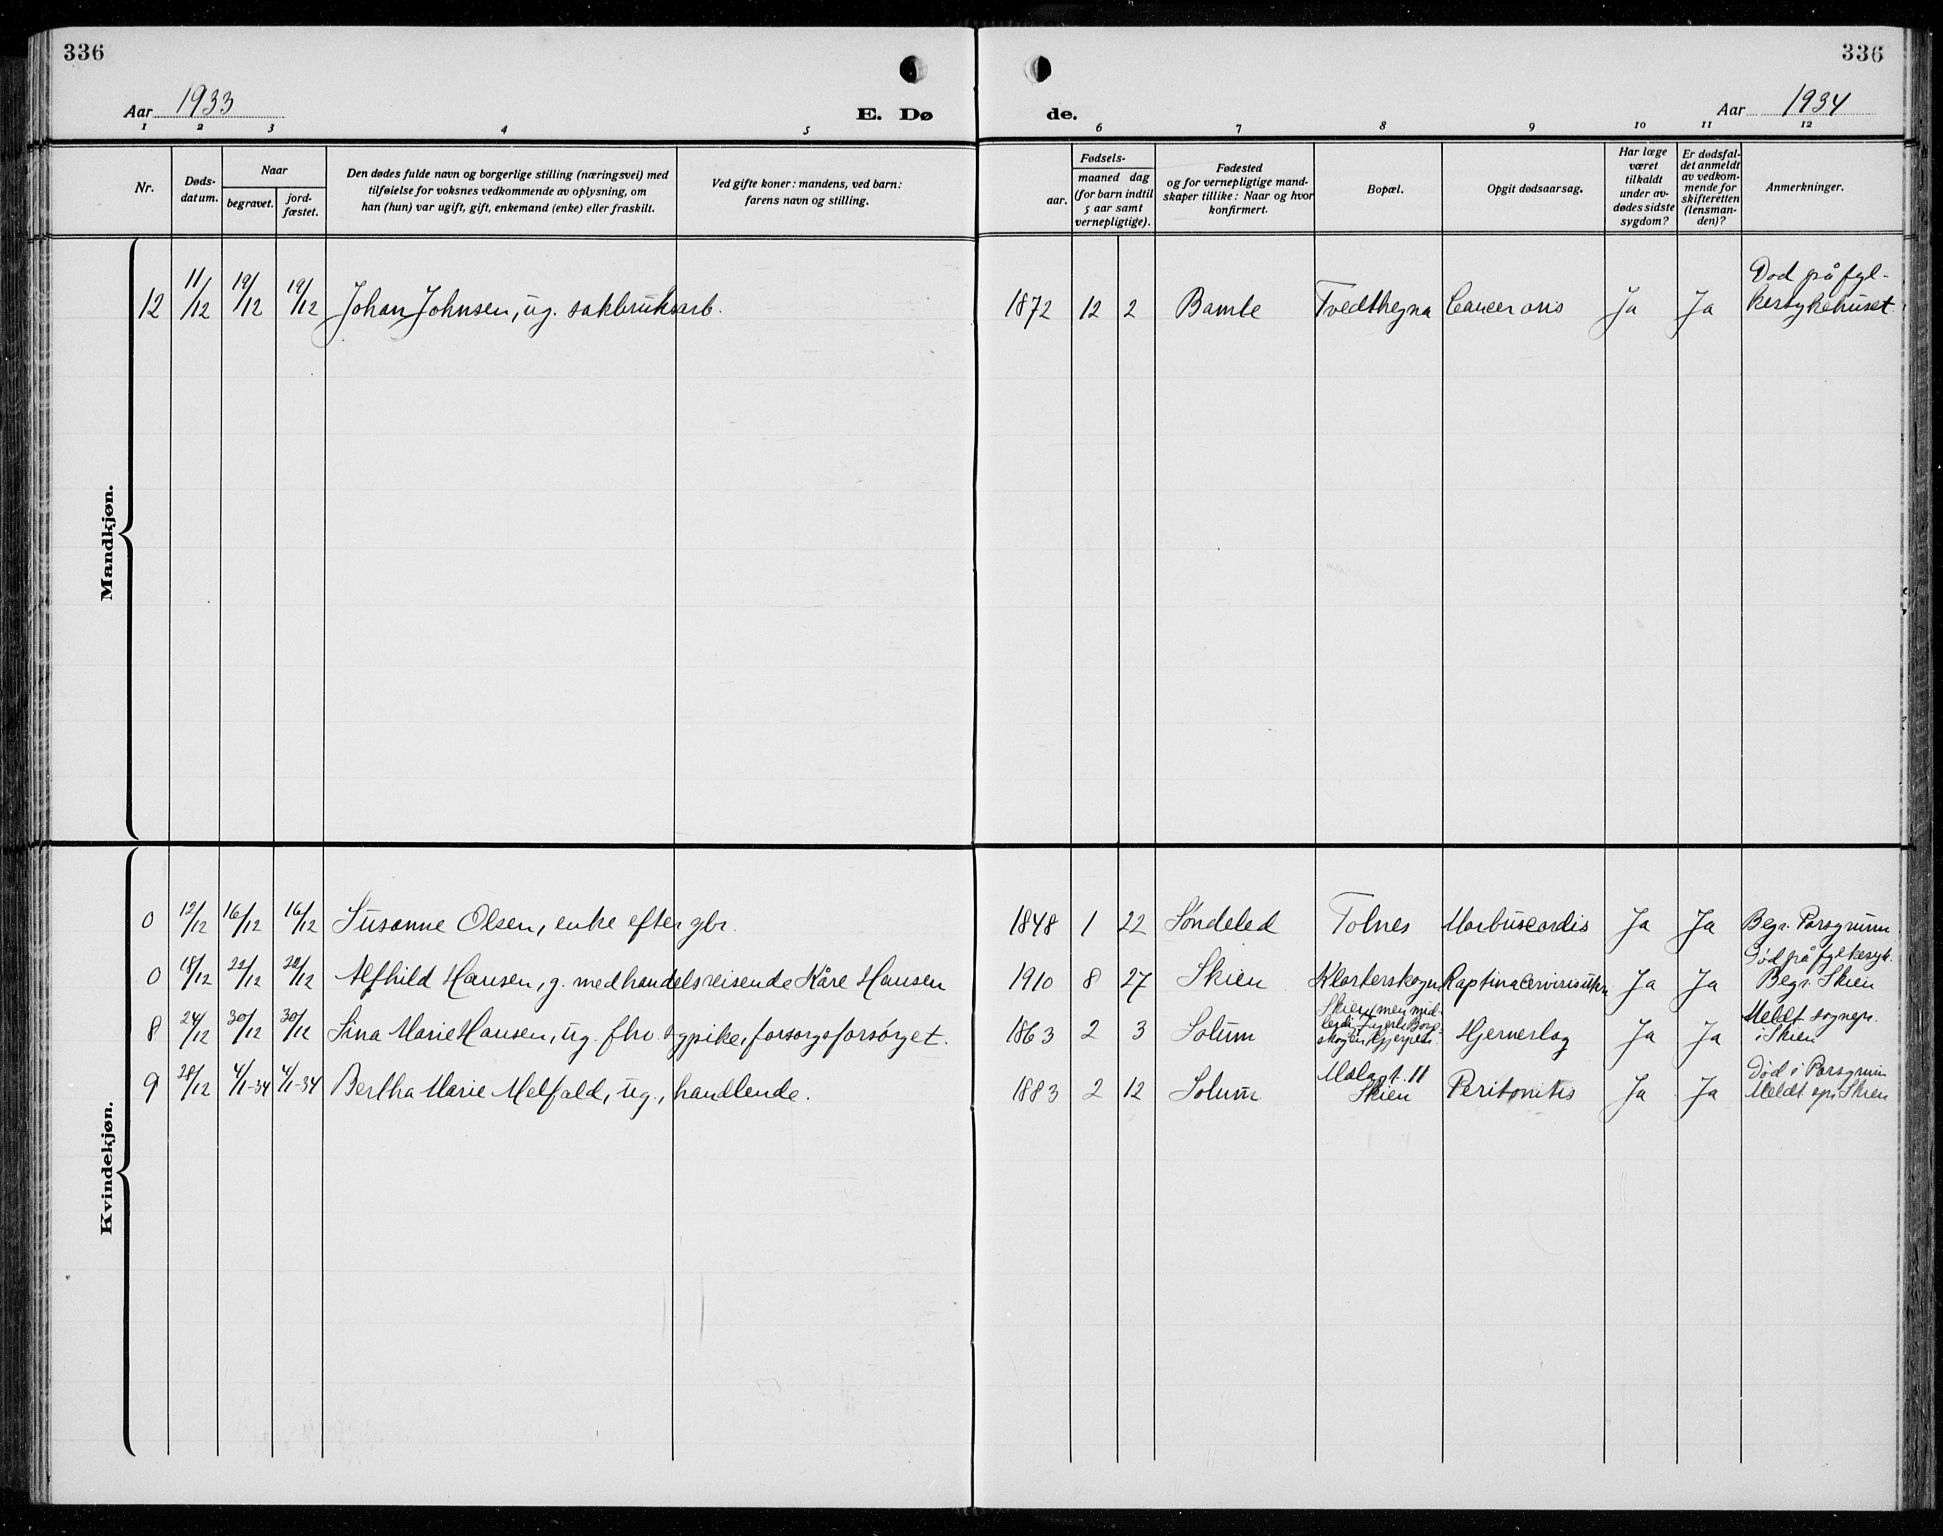 336
336
Aar 1933
E. Dø
de.
Aar 1934
1 2 3 4 5 6 7 8 9 10 11 12
Nr.
Døds-
datum.
Naar
begravet.
jord-
fæstet.
Den dødes fulde navn og borgerlige stilling (næringsvei) med
tilføielse for voksnes vedkommende av oplysning, om
han (hun) var ugift, gift, enkemand (enke) eller fraskilt.
Ved gifte koner: mandens, ved barn:
farens navn og stilling.
Fødsels-
aar.
maaned dag
(for barn indtil
5 aar samt
vernepligtige).
Fødested
og for vernepligtige mand-
skaper tillike: Naar og hvor
konfirmert.
Bopæl.
Opgit dødsaarsag.
Har læge
været
tilkaldt
under av-
dødes sidste
sygdom?
Er dødsfal-
det anmeldt
av vedkom-
mende for
skifteretten
(lensman-
den)?
Anmerkninger.
Mandkjøn.
12 11/12 19/12 19/12 Johan Johnsen, ug. sakbruksarb. 1872 12 2 Bamle Tvedthegna Cancer oris Ja Ja Død på fyl-
kersykehuset.
Kvindekjøn.
0 12/12 16/12 16/12 Susanne Olsen, enke efter gbr. 1848 1 22 Søndeled Tolnes Morbus cordis Ja Ja Begr. Porsgrunn
0 18/12 22/12 22/12 Alfhild Hansen, g. med handelsreisende Kåre Hansen 1910 8 27 Skien Klosterskogen Ja Ja Død på fylkesyk.
Begr. Skien
8 24/12 30/12 30/12 Lina Marie Hansen, ug. fhv. pike, forsorgsforsørget. 1863 2 3 Solum Skien, men mid-
Hjerneslag Ja Ja Meldt sognepr.
i Skien
9 28/12 4/1-34 4/1-34 Bertha Marie Melfald, ug., handlende. 1883 2 12 Solum 11
Skien Peritonitis Ja Ja Død i Porsgrunn
Meldt spr. Skien